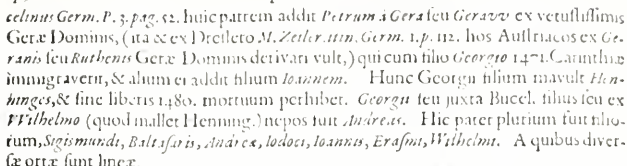 celinus Germ. P. 3. pag. 52. huic patrem addit Petrum à Gera seu Geravv ex vetustissimis
Geræ Dominis, (ita & ex Dresleto M. Zeiler. itin. Germ. 1. p. 112. hos Austriacos ex Ge-
ranis seu Ruthenis Geræ Dominis derivari vult,) qui cum filio Georgio 1471. Carinthiæ
immigraverit, & alium ei addit filium Ioannem. Hunc Georgii filium mavult Hen-
hinges, & sine liberis 1480. mortuum perhibet. Georgii seu juxta Bucel. filius seu ex
Wilhelmo (quod mallet Henning.) nepos fuit Andreas. Hic pater plurium fuit filio-
rum, Sigismundi, Baltasaris, Andreæ, Iodoci, Ioannis, Erasmi, Wilhelmi. A quibus diver-
sæ ortæ sunt lineæ